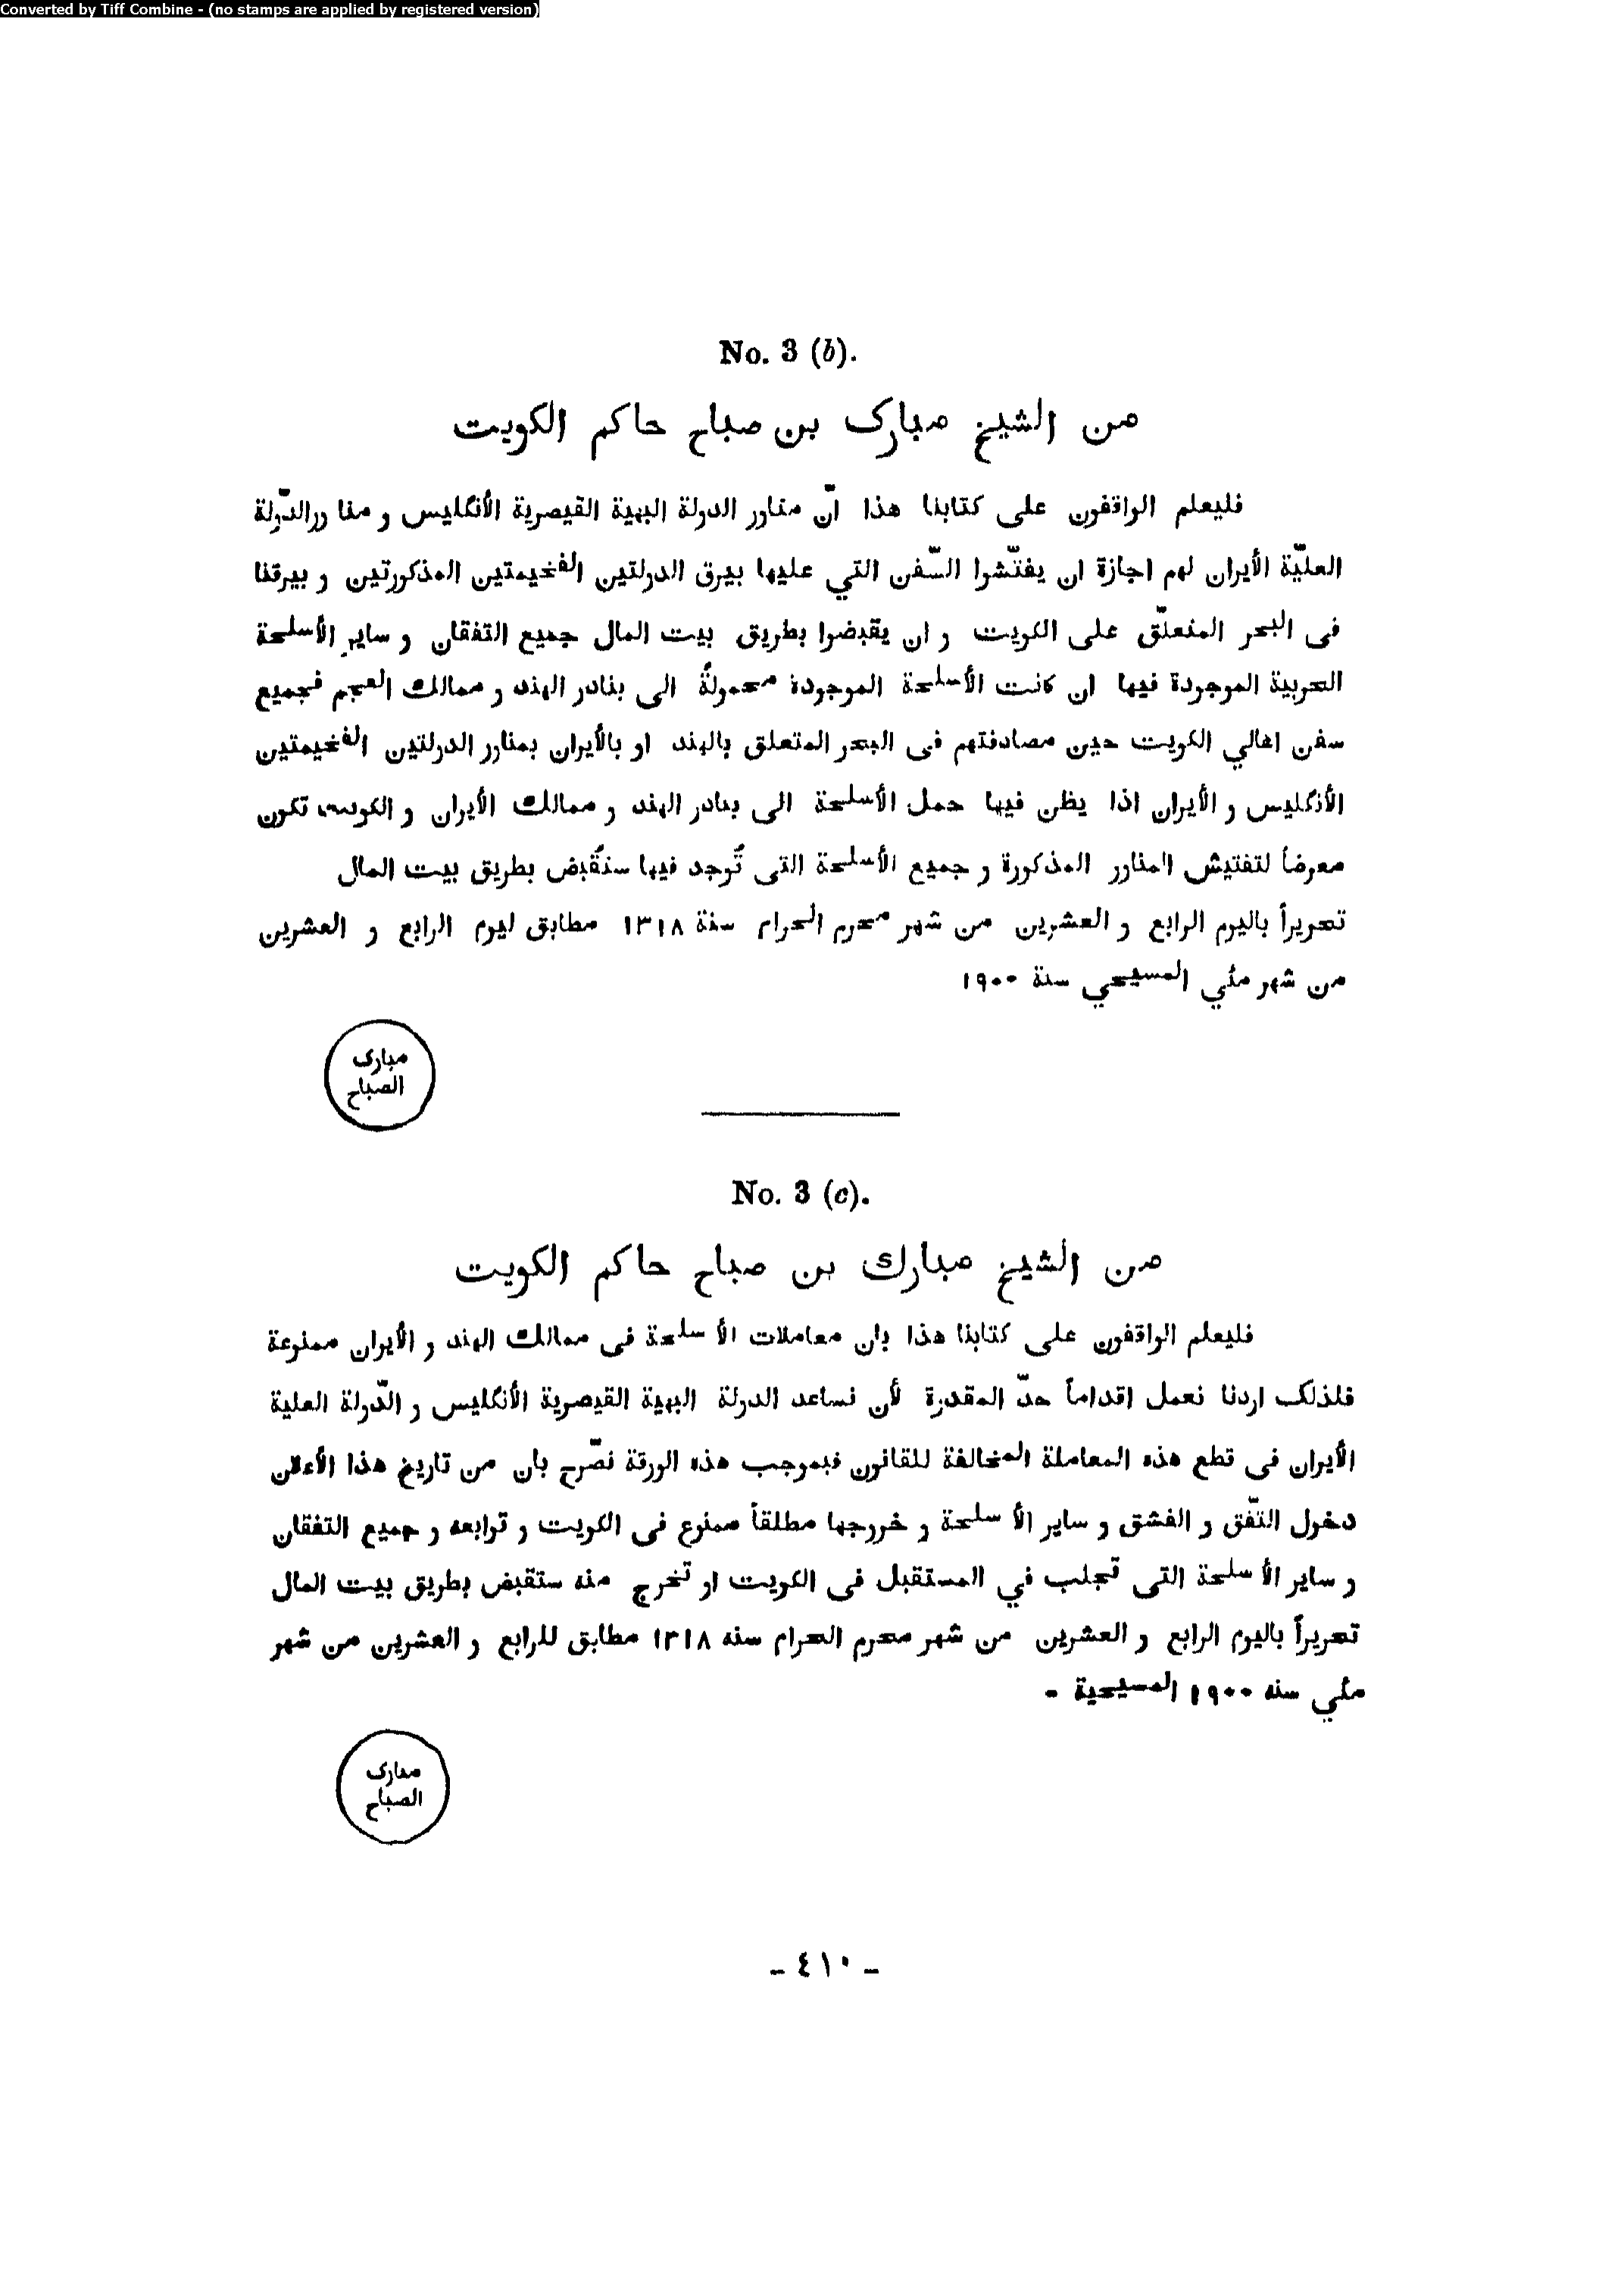 Converted by Tiff Combine - (no stamps are applied by registered version)
No. 3 (b).
من الشيخ مبارك بن صباح حاكم الكويت
فليعلم الواقفون على كتابنا هذا انّ مناور الدولة البهية القيصرية الأنكليس و منا ورالدّولة
العليّة الأيران لهم اجازة ان يفتّشوا السّفن التي عليها بيرق الدولتين الفخيمتين المذكورتين و بيرقنا
فى البحر المتعلّق على الكويت و ان يقبضوا بطريق بيت المال جميع التفقان و ساير الأسلحة
الحربية الموجودة فيها ان كانت الأسلحة الموجودة محمولةً الى بنادر الهند و ممالك العجم فجميع
سفن اهالي الكويت حين مصادفتهم فى البحر المتعلق بالهند او بالأيران بمناور الدولتين الفخيمتين
الأنكليس و الأيران اذا يظن فيها حمل الأسلحة الى بنادر الهند و ممالك الأيران و الكويت تكون
معرضاً لتفتيش المناور المذكورة و جميع الأسلحة التى تُوجد فيها ستُقبض بطريق بيت المال
تحريراً باليوم الرابع و العشرين من شهر محرم الحرام سنة ١٣١٨ مطابق ليوم الرابع و العشرين
من شهر مئي المسيحي سنة ١٩٠٠
مبارك
الصباح
No. 3 (c).
من الشيخ مبارك بن صباح حاكم الكويت
فليعلم الواقفون على كتابنا هذا بان معاملات الأ سلحة فى ممالك الهند و الأيران ممنوعة
فلذلك اردنا نعمل اقداماً حدّ المقدرة لأن نساعد الدولة البهية القيصرية الأنكليس و الدّولة العلية
الأيران فى قطع هذه المعاملة المخالفة للقانون فبموجب هذه الورقة نصّرح بان من تاريخ هذا الأعلان
دخول التّفق و الفشق و ساير الأ سلحة و خروجها مطلقاً ممنوع فى الكويت و توابعه و جميع التفقان
و ساير الأ سلحة التى تجلب في المستقبل فى الكويت او تخرج منه ستقبض بطريق بيت المال
تحريراً باليوم الرابع و العشرين من شهر محرم الحرام سنه ١٣١٨ مطابق للرابع و العشرين من شهر
مئي سنه ١٩٠٠ المسيحية -
مبارك
الصباح
- ٤١٠ -